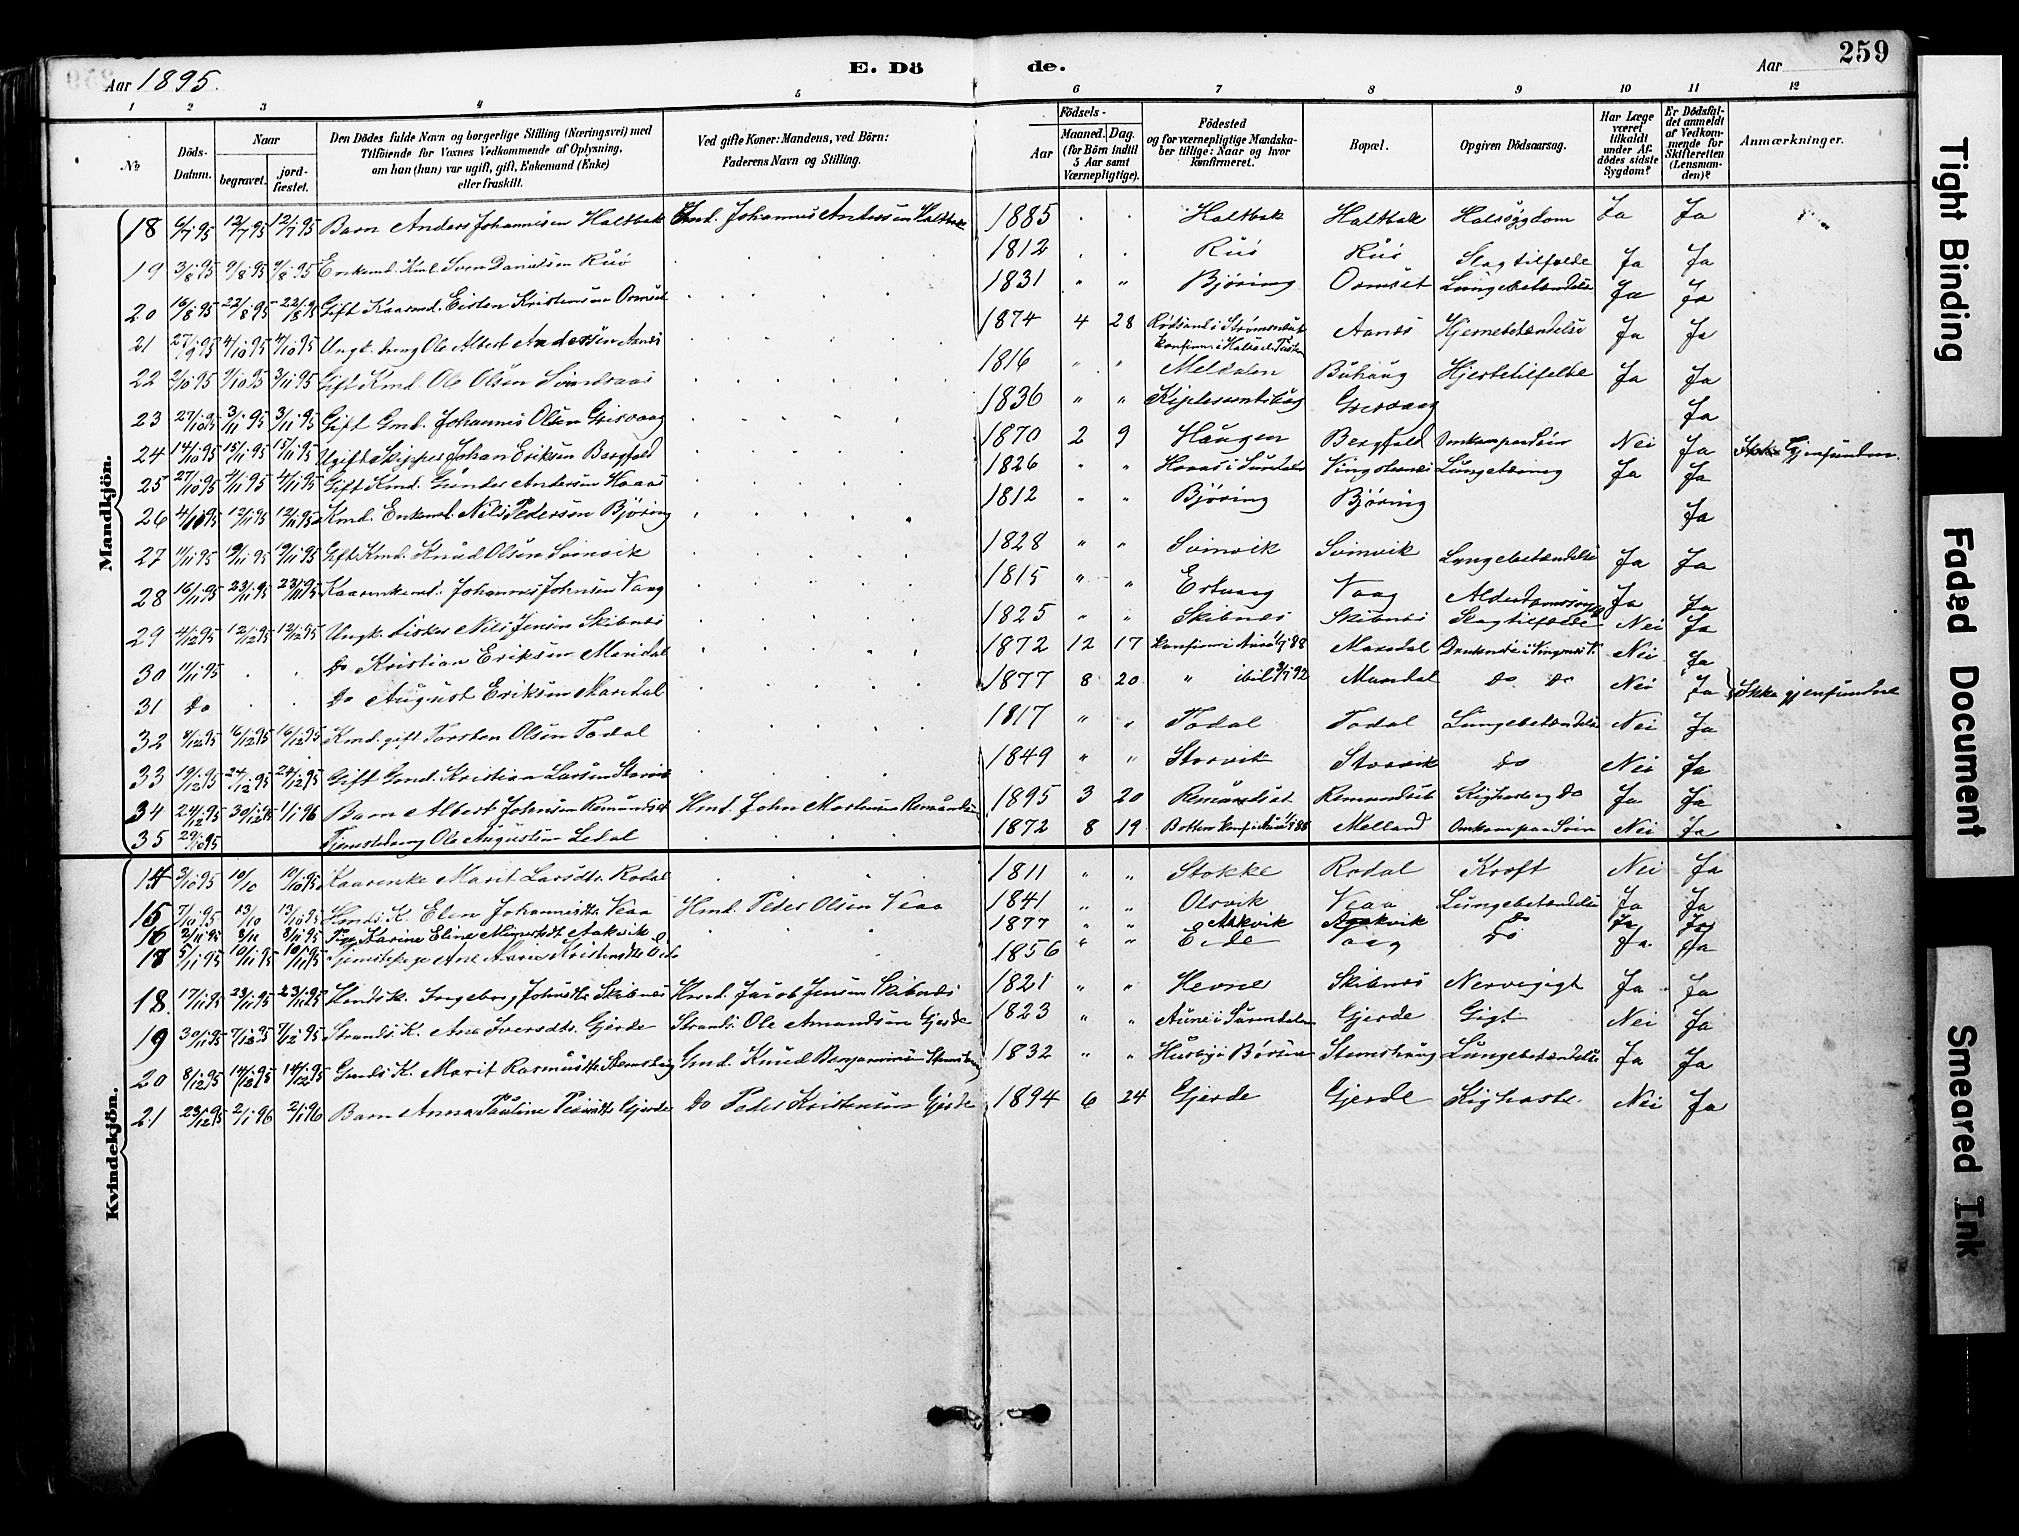 259
Aar 1895.
E. Dö
de.
Aar
1 2 3 4 5 6 7 8 9 10 11 12
No
Döds-Datum.
Naar
begravet.
jord-fæstet.
Den Dödes fulde Navn og borgerlige Stilling (Næringsvei) med Tilföiende for Voxnes Vedkommende af Oplysning, om han (hun) var ugift, gift, Enkemand (Enke) eller fraskilt.
Ved gifte Koner: Mandens, ved Börn: Faderens Navn og Stilling.
Födsels-
Aar
Maaned. Dag.
(for Börn indtil 5 Aar samt Værnepligtige).
Födested og for værnepligtige Mandska-ber tillige: Naar og hvor konfirmeret.
Bopæl.
Opgiven Dödsaarsag.
Har Læge været tilkaldt under Af-dödes sidste Sygdom?
Er Dödsfal-det anmeldt af Vedkom-mende for Skifteretten (Lensman-den)?
Anmærkninger.
Mandkjön.
18 6/7 95 12/7 95 12/7 95 Barn Anders Johannesen Haltbak Johannes Andersen Haltbak 1885 Haltbak Haltbak Halssygdom Ja Ja
19 3/8 95 9/8 95 9/8 95 Enkemd. Kml. Sven Danielsen Ruø 1812 Ruø Ruø Slagtilfælde Ja Ja
20 16/8 95 22/8 95 22/8 95 Gift Kaarmd. Eisten Kristensen Ormset 1831 " " Bjøring Ormset Lungebetændelse Ja Ja
21 27/9 95 4/10 95 4/10 95 Ungk. Ole Albert Andersen Aanes 1874 4 28 Rødsand i Strømsneset Aanes Hjernebetændelse Ja Ja
22 95 95 3/11 95 Gift Kmd. Ole Olsen Svindsaas 1816 " " Meldalen Buhaug Hjertetilfelde Ja Ja
23 27/10 95 3/11 95 3/11 95 Gift Gmd. Johannes Olsen Grisvaag 1836 " " Grisvaag Ja
24 14/10 95 15/11 95 15/11 95 Ugift Skipper Johan Eriksen Bergfald 1870 2 9 Haugen Bergfald Omkom paa Søen Nei Ja Gjenfunden
25 27/10 95 4/11 95 4/11 95 Gift Kmd. Gunder Andersen Hoaas 1826 " " Hoaas i Surndal Vingsternes Lungetæring Ja Ja
26 95 12/11 95 12/11 95 Kmd. Enkemd. Nils Pedersen Bjøring 1812 " " Bjøring Bjøring Ja
27 11/11 95 19/11 95 19/11 95 Gift Kmd. Knud Olsen Svinvik 1828 " " Svinvik Svinvik Lungebetændelse Ja Ja
28 16/11 95 23/11 95 23/11 95 Kaarenkemd. Johannes Johnsen Vaag 1815 " " Estvaag Vaag Ja Ja
29 4/12 95 12/12 95 12/12 95 Ungk. Fisker Nils Jensen Skibnes 1825 " " Skibnes Skibnes Slagtilfælde Nei Ja
30 11/11 95 Do Kristian Eriksen Maridal 1872 12 17 Maridal Nei Ja
31 Do Do August Eriksen Maridal 1877 8 20 " Do Do Nei Ja Ikke gjenfundne
32 9/12 95 16/12 95 16/12 95 Kmd. gift Torsten Olsen Todal 1817 " " Todal Todal Lungebetændelse Nei Ja
33 19/12 95 24/12 95 24/12 95 Gift Gmd. Kristian Larsen Storvik 1849 " " Storvik Storvik Do Nei Ja
34 24/12 95 30/12 95 1/1 96 Barn Albert Johnsen Remundset Hmd. John Mortensen Remundset 1895 3 20 Remundset Remundset Kighoste og Do Ja Ja
35 29/10 95 Ole Augustin Ledal 1872 8 19 Botten Melland Omkom paa Søen Nei Ja
Kvindekjön.
14 3/10 95 10/10 10/10 95 Kaarenke Marit Larsdtr. Rodal 1811 " " Stokke Rodal Kræft Nei Ja
15 7/10 95 13/10 13/10 95 K. Elen Johannesdtr. Veaa Hmd. Peder Olsen Veaa 1841 " " Olsvik Veaa Lungebetændelse Ja Ja
16 2/11 95 8/11 8/11 95 Karine Eline Aakvik 1877 Aakvik Aakvik Do Ja Ja
18 5/11 95 10/11 95 10/11 95 Tjenestepige Ane Kristensdtr. Eide 1856 " " Eide Vaag Do Ja Ja
18 17/11 95 23/11 95 23/11 95 K. Ingeborg Johnsdtr. Skibnes Hmd. Jacob Jensen Skibnes 1821 " " Hevne Skibnes Nervegigt Ja Ja
19 30/11 95 7/12 95 7/12 95 Strands. K. Ane Iversdtr. Gjerde Strands. Ole Amundsen Gjerde 1823 " " Aune i Surendalen Gjerde Gigt Nei Ja
20 8/12 95 14/12 95 14/12 95 Gmds K. Marit Rasmusdtr. Stemshaug Gmd. Knud Benjaminsen Stemshaug 1832 " " Husby i Børsen Stemshaug Lungebetændelse Ja Ja
21 23/12 95 2/1 96 2/1 96 Barn Anna Pauline Pedersdtr. Gjerde Do Peder Kristensen Gjerde 1894 6 24 Gjerde Gjerde Kighoste Nei Ja
Tight Binding
Faded Document
Smeared Ink